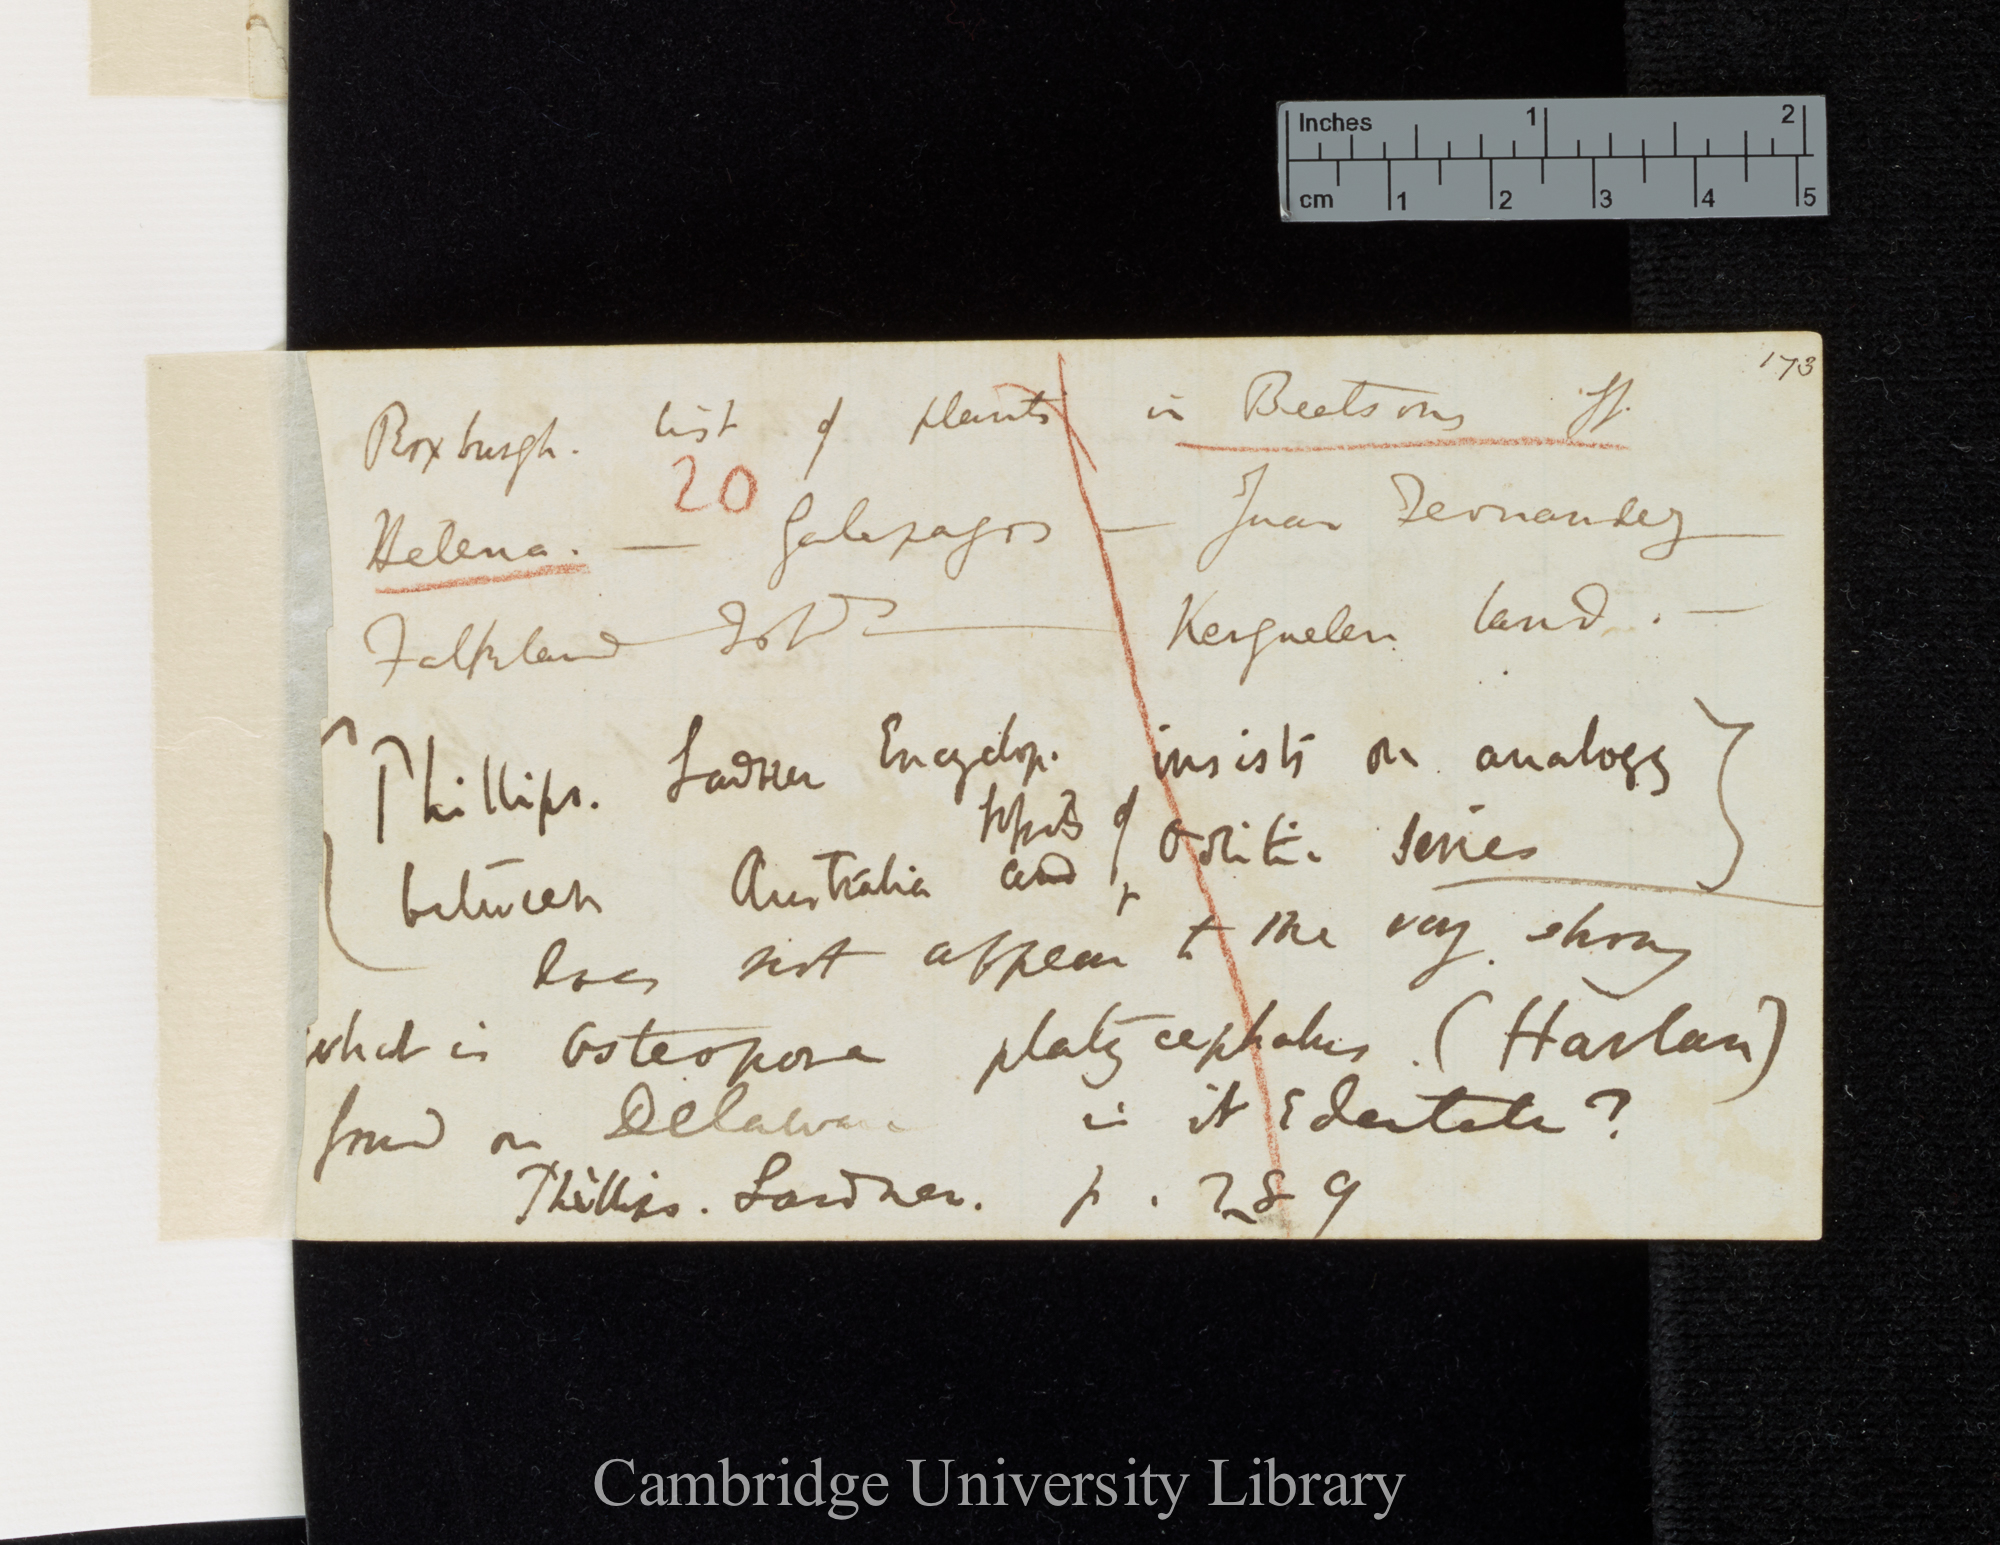 Inches 1 2
cm 1 2 3 4 5
173
Roxburgh. list of plants in Beetsons St.
20
Helena. — Galapagos — Juan Fernandez —
Falkland Isds — Kerguelen land. —
{Phillips. Lardner Encyclop. insists on analogy}
fossils of
between Australia and oolitic series
does not appear to me very strong
what is Osteopora platycephalus. (Harlan)
found on Delaware is it Edentate?
Phillips. Lardner. p. 289
Cambridge University Library